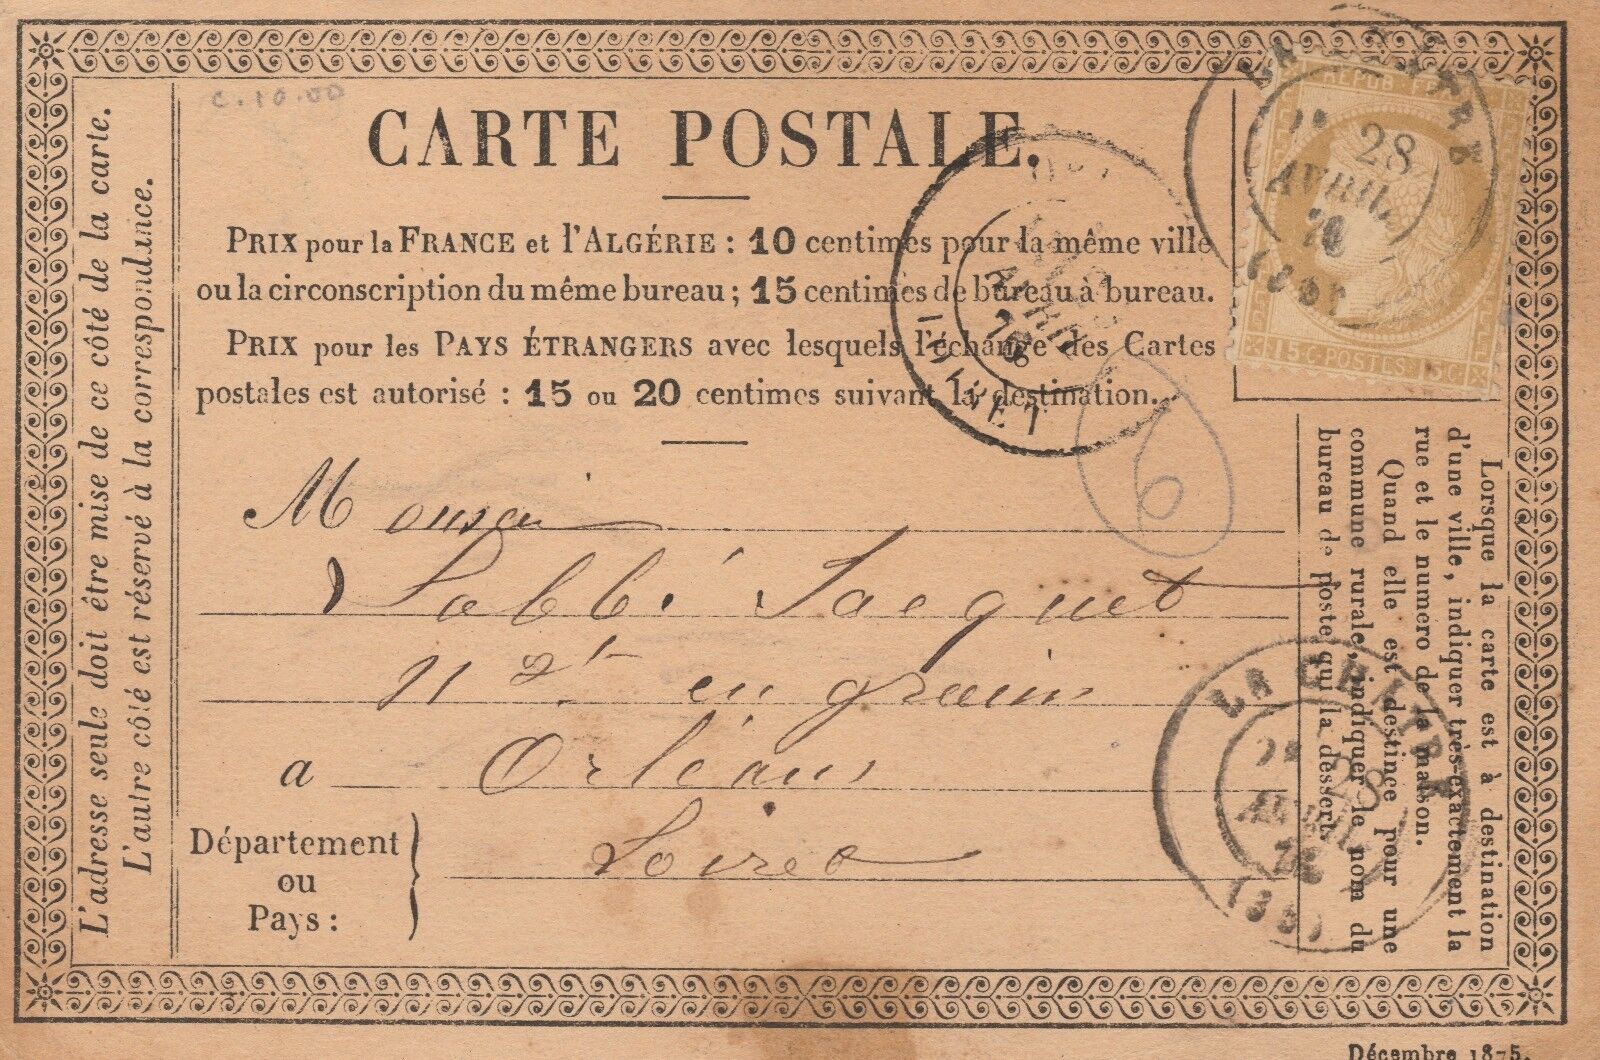 c. 10.00
CARTE POSTALE.
PRIX pour la FRANCE et l'ALGÉRIE : 10 centimes pour la même ville
ou la circonscription du même bureau ; 15 centimes de bureau à bureau.
PRIX pour les PAYS ÉTRANGERS avec lesquels l'échange des Cartes
postales est autorisé : 15 ou 20 centimes suivant la destination.
Monsieur
L'abbé Jacquet
en
a Orléans
Département
ou
Pays :
Loiret
L'adresse seule doit être mise de ce côté de la carte.
L'autre côté est réservé à la correspondance.
Lorsque la carte est à destination
d'une ville, indiquer très-exactement la
rue et le numéro de la maison.
Quand elle est destinée pour une
commune rurale, indiquer le nom du
bureau de poste qui la dessert.
REPUB. FRANC.
15 C. POSTES 15 C.
LA CHATRE
28
AVRIL
76
LOIRET
AVRIL
76
6
LA CHATRE
28
AVRIL
76
Décembre 1875.